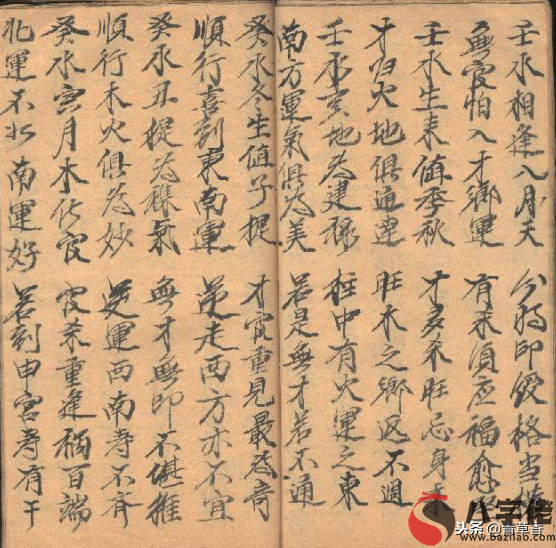 壬水相逢八月天 分時印綬格當
無官怕入才鄉運 有須應福愈
壬水生來值季秋 才多不旺忌身柔
才归火地俱通達 旺木之鄉返不週
壬水亥地為建祿 柱中有火運之東
南方運氣俱為美 若是無才若不通
癸水冬生值子提 才官重見最為奇
順行喜到東南運 逆走西方亦不宜
癸水丑提為雜氣 無才無印不堪推
順行木火俱為妙 逆運西南壽不齊
癸水寅月木化官 官煞重逢禍百端
北運不如南運好 若到申宮壽有干
八字佬
头条@青草香
www.bazilao.com